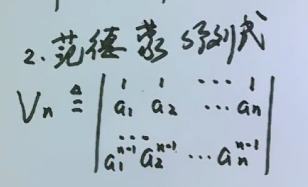 2. 范德蒙行列式
Vₙ ≜ | 1 1 ⋯ 1 |
| a₁ a₂ ⋯ aₙ |
| ⋯ |
| a₁ⁿ⁻¹ a₂ⁿ⁻¹ ⋯ aₙⁿ⁻¹ |